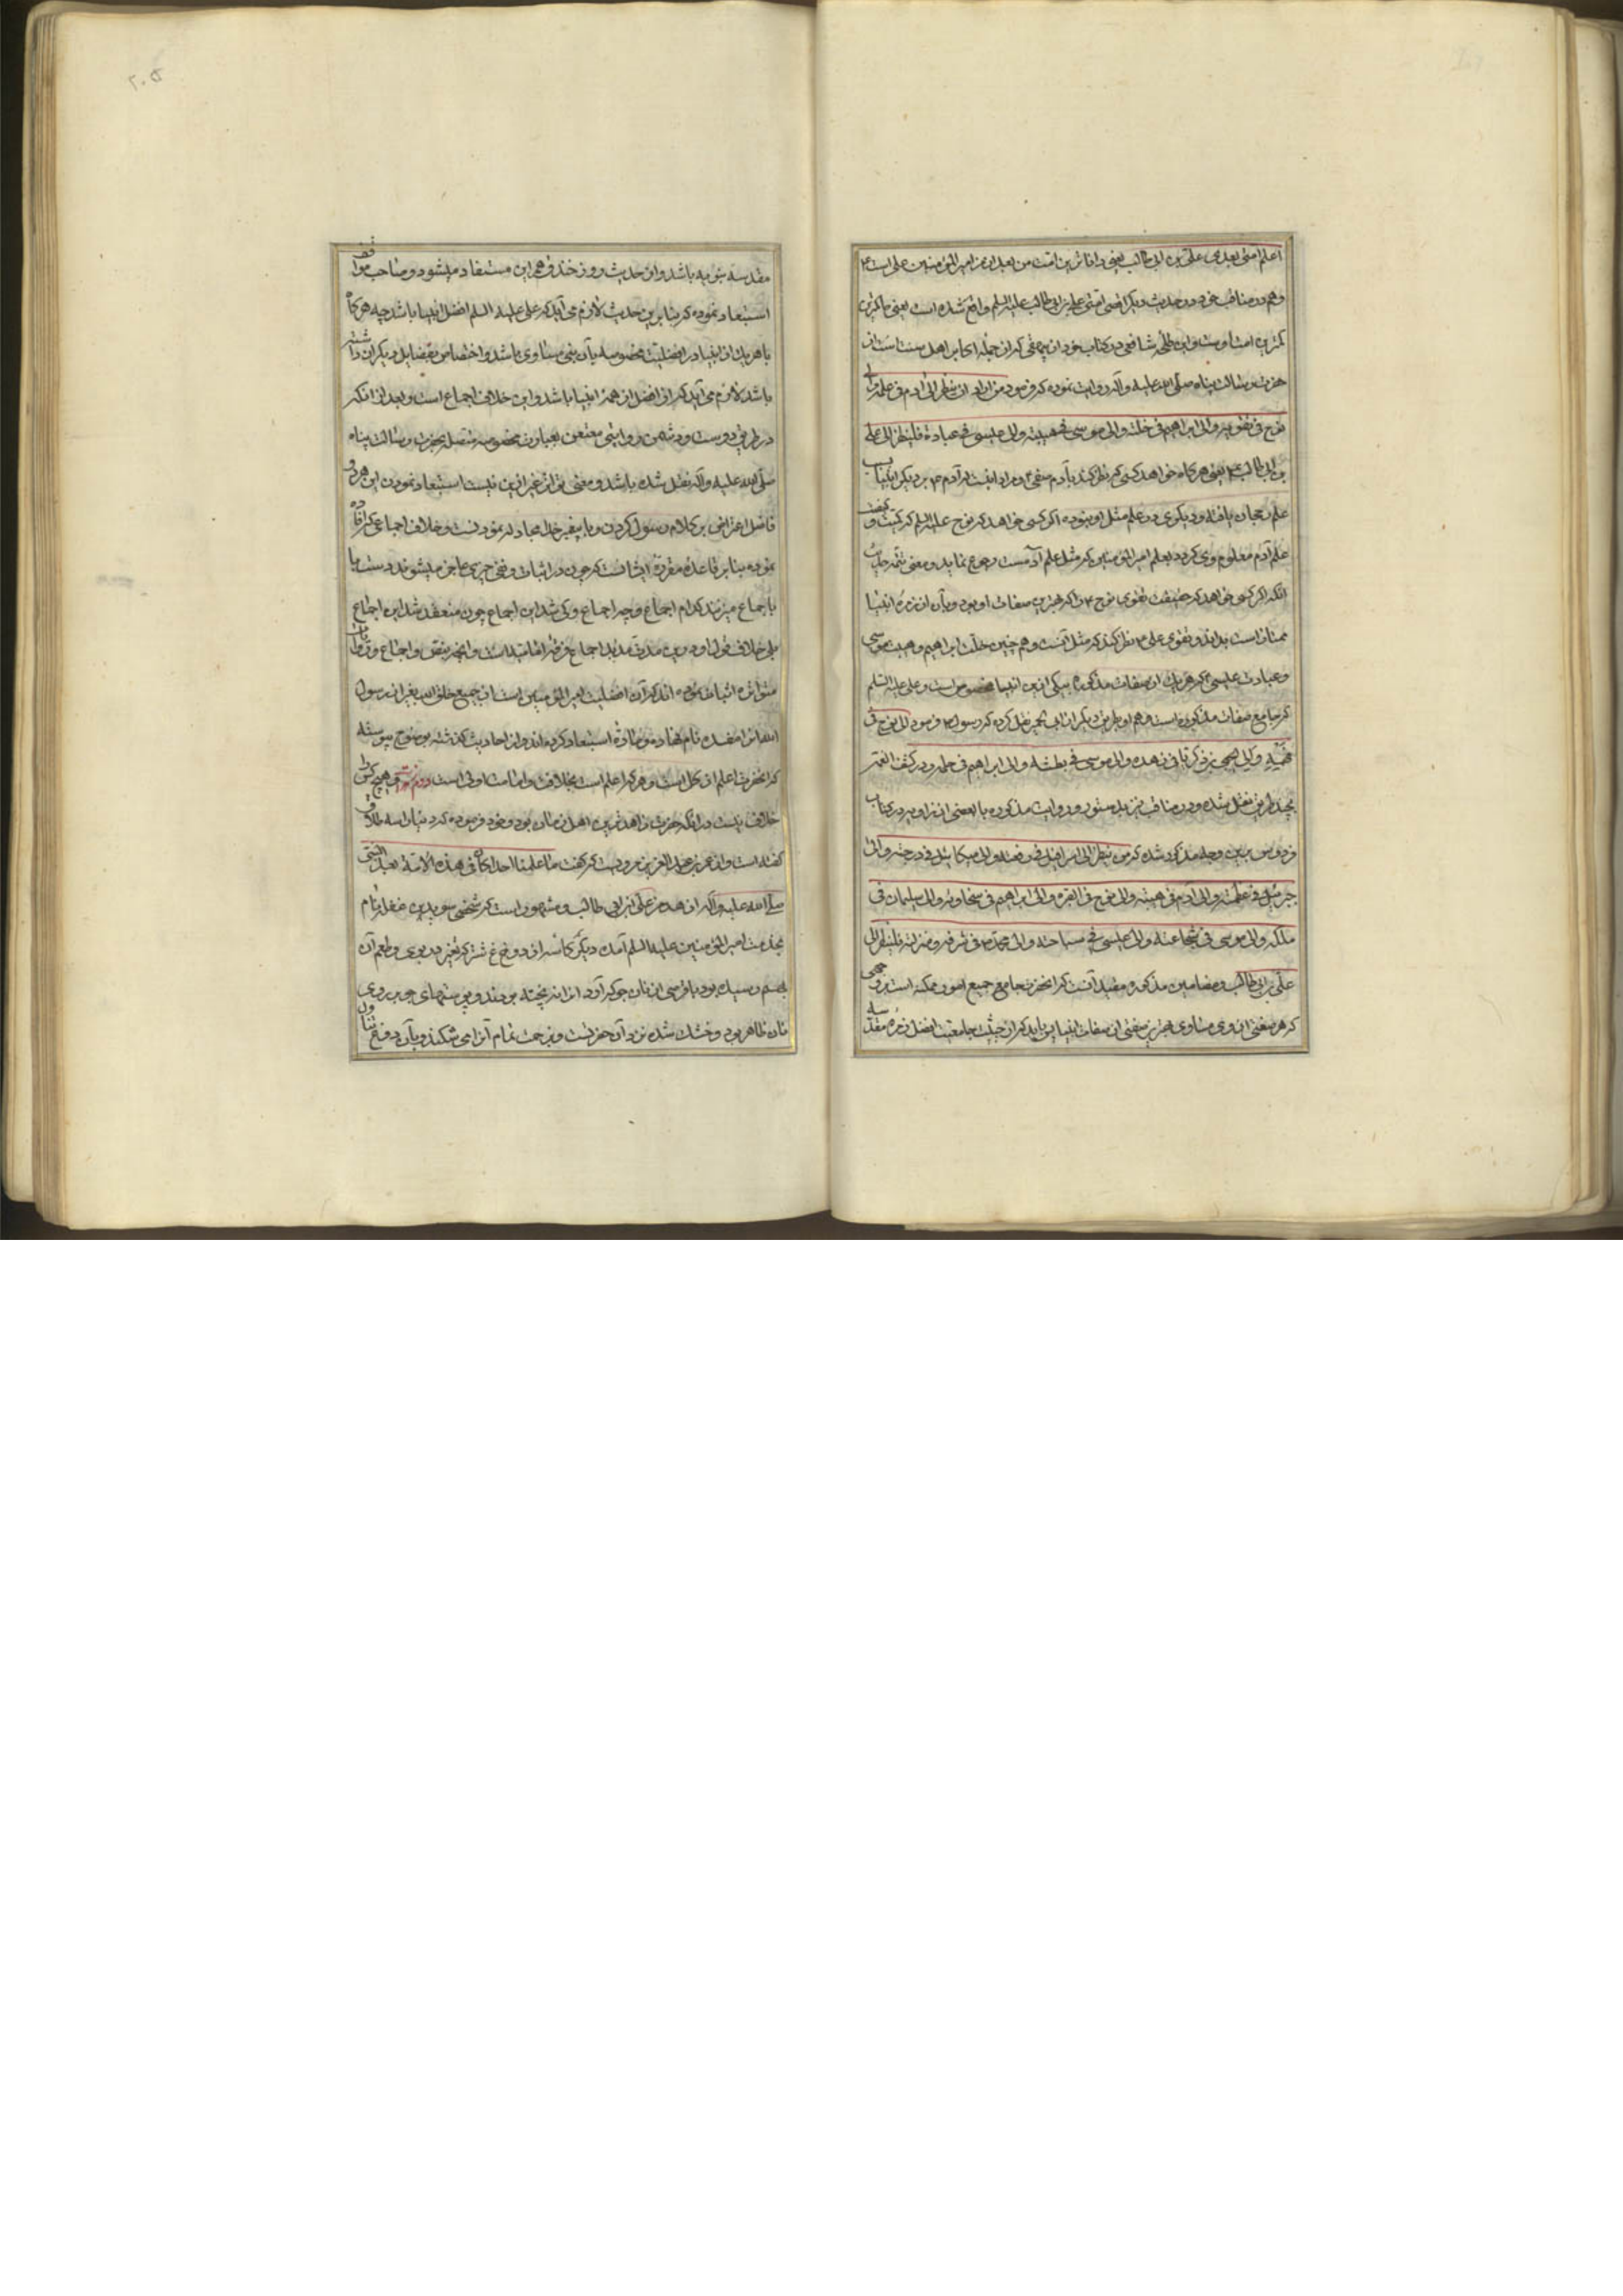 اعلم امتی بعدی علی بن ابی طالب یعنی داناترین امت من بعد از من امیر المؤمنین علی است
و هم در مناقب خود در حدیث دیگر اقضی امتی علی بن ابی طالب علیه السلم واقع شده است یعنی حاکم‌ترین
امت اوست و ابن طلحه شافعی در کتاب خود از بیهقی که از جمله اکابر اهل سنت است از
حضرت رسالت پناه صلی الله علیه و آله روایت نموده که فرمود من اراد ان ینظر الی ادم فی علمه و الی
نوح فی تقویه و الی ابراهیم فی خلته و الی موسی فی هیبته و الی عیسی فی عبادة فلینظر الی علی
بن ابی طالب یعنی هر کاه خواهد کسی که نظر کند بآدم صفی و مراد اینست که آدم بر دیکر انبیا ب
علم رجحان یافته و دیکری در علم مثل او نبوده اکر کسی خواهد که نوح علیه السلم کمیت و کیفیت
علم آدم معلوم وی کردد بعلم امیر المؤمنین که مثل علم آدمست رجوع نماید و معنی تتمه حدیث
انکه اکر کسی خواهد که حقیقت تقوی نوح را که بهترین صفات او بود و بآن از زمره انبیا
ممتاز است بداند در تقوی علی نظر کند که مثل آنست و هم چنین خلت ابراهیم و هیبت موسی
و عبادت عیسی که هر یک از صفات مذکوره بیکی ازین انبیا مخصوص است و علی علیه السلم
که جامع صفات مذکوره است و هم او بطریق دیکر از ابی نقل کرده که رسول فرمود الی نوح فی
فهمه و الی یحیی بن زکریا فی زهده و الی موسی فی بطشه و الی ابراهیم فی حلمه و در کشف الغمه
بچند طریق نقل شده و در مناقب بدستور و روایت مذکوره با بعضی از زواید در کتاب
فردوس بدین وجه مذکور شده که من ینظر الی اسرافیل فی رفعته و الی میکائیل فی درجته و الی
جبرئیل فی عظمته و الی آدم فی هیبته و الی نوح فی و الی ابراهیم فی سخاوته و الی سلیمان فی
ملکه و الی موسی فی شجاعته و الی عیسی فی سیاحته و الی محمد فی شرفه و منزلته فلینظر الی
علی بن ابی طالب و مضامین مذکوره مفید آنست که انحضرت جامع جمیع امور ممکنه است بروجهی
که هر صفتی از وی مساوی بهترین صفتی از صفات انبیا پس باید که از حیثیت جامعیت افضل زمره مقدسه
مقدسه نبویه باشد و از حدیث روز خندق هم این مستفاد میشود و صاحب مواقف
استبعاد نموده که بنا برین حدیث لازم می آید که علی علیه السلم افضل انبیا باشد چه هر کاه
با هر یک از انبیا در افضلیت مخصوصه بآن نبی مساوی باشد و اختصاص بفضایل دیکران داشته
باشد لازم می آید که او افضل از همه انبیا باشد و این خلاف اجماع است و بعد از انکه
در طریق دوست و دشمن روایتی معنعن بعبارت مخصوصه متصل بحضرت رسالت پناه
صلی الله علیه و آله نقل شده باشد و معنی او غیر ازین نیست استبعاد نمودن این هر دو
فاضل اعتراض بر کلام رسول کردن و با پیغمبر خدا مجادله نمودنست و خلاف اجماعی که افاده
نموده بنا بر قاعده مقرره ایشانست که چون در اثبات و نفی چیزی عاجز میشوند دست با
باجماع میزنند کدام اجماع و چه اجماع و کی شد این اجماع چون منعقد شد این اجتماع
بلی خلاف قول او درین مدت مدید اجماع فرقه امامیه است و انچه بنقص و اجماع و روایات
متواتره اثبات نموده اند که آن افضلیت امیر المؤمنین است از جمیع خلق الله بغیر از رسول
الله نام نهاده استبعاد کرده اند و از احادیث کذشته بوضوح پیوسته
که انحضرت اعلم از کل است و هر که اعلم است بخلافت و امامت اولی است دوم زهد و هیچ کس را
خلاف نیست در انکه حضرت زاهدترین اهل زمان بود و خود فرموده که دنیا را سه طلاق
کفته است و از عمر بن عبد العزیز مرویست که کفت ما علمنا احدا کان فی هذه الامة بعد النبی
صلی الله علیه و آله ازهد من علی بن ابی طالب و مشهور است که شخصی سوید بن غفله نام
بخدمت امیر المؤمنین علیه السلم آمده دید که کاسه از دوغ ترش که تغییر در بوی و طعم آن
بهم رسیده بود با قرصی از نان جو که آرد انرا نه بیخته بودند و پوستهای جو بر روی
نان ظاهر بود و خشک شده نزد آن حضرتست و بزحمت تمام آنرا می شکند و بآن دوغ تناول